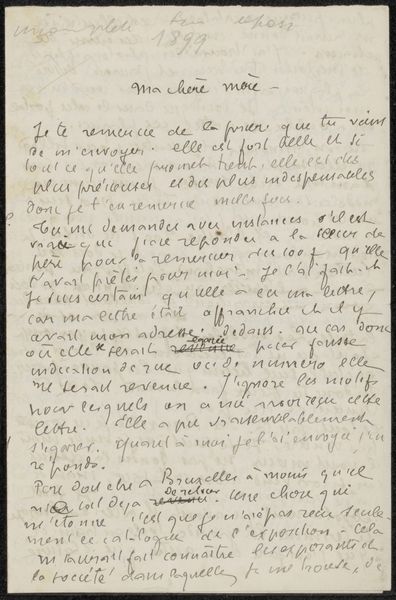 1899
Ma chère mère -
Je te remercie de la prière que tu viens
de m'envoyer. elle est fort belle et si
tout ce qu'elle promet tient, elle est des
plus précieuses et des plus indispensables
donc je t'en remercie mille fois.
Tu me demandes avec instances s'il est
vrai que j'aie répondu à la sœur de
père pour la remercier du 100f qu'elle
t'avait prêtés pour moi. Je l'ai fait et
je suis certain qu'elle a eu ma lettre,
car ma lettre était affranchie et il y
avait mon adresse dedans. au cas donc
où elle serait égarée pour fausse
indication de rue ou de numéro elle
me serait revenue. J'ignore les motifs
pour lesquels on a cette
lettre. Elle a pu vraisemblablement
s'égarer. Quant à moi je l'ai envoyée j'en
réponds.
Bruxelles à moins qu'il
n'en soit déjà de retour. Une chose qui
m'étonne c'est que je n'ai pas reçu seule-
ment le catalogue de l'exposition - cela
m'aurait fait connaître les exposants de
la société dans laquelle je me trouve,